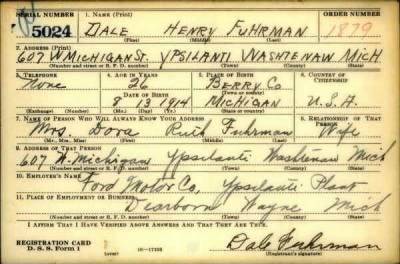 SERIAL NUMBER 1. NAME (Print) ORDER NUMBER
5024 DALE HENRY FUHRMAN 1879
(First) (Middle) (Last)
2. ADDRESS (Print)
607 W MICHIGAN ST. YPSILANTI WASHTENAW MICH
(Number and street or R. F. D. number) (Town) (County) (State)
3. TELEPHONE 4. AGE IN YEARS 5. PLACE OF BIRTH 6. COUNTRY OF CITIZENSHIP
None 26 BERRY CO
DATE OF BIRTH (Town or county)
8 13 1914 MICHIGAN U.S.A.
(Exchange) (Number) (Mo.) (Day) (Yr.) (State or country)
7. NAME OF PERSON WHO WILL ALWAYS KNOW YOUR ADDRESS 8. RELATIONSHIP OF THAT PERSON
Mrs. Dora Ruth Fuhrman Wife
(Mr., Mrs., Miss) (First) (Middle) (Last)
9. ADDRESS OF THAT PERSON
607 W. Michigan Ypsilanti Washtenaw Mich
(Number and street or R. F. D. number) (Town) (County) (State)
10. EMPLOYER'S NAME
Ford Motor Co, Ypsilanti Plant
11. PLACE OF EMPLOYMENT OR BUSINESS
Dearborn Wayne Mich
(Number and street or R. F. D. number) (Town) (County) (State)
I AFFIRM THAT I HAVE VERIFIED ABOVE ANSWERS AND THAT THEY ARE TRUE.
REGISTRATION CARD
D. S. S. Form 1 16-17105 Dale Fuhrman
(Registrant's signature)